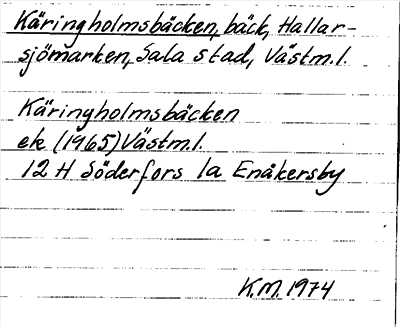 Käringholmsbäcken, bäck, Hallar-
sjömarken, Sala stad, Västm.l.
Käringholmsbäcken
ek (1965) Västm.l.
12 H Söderfors 1a Enåkersby
K.M. 1974